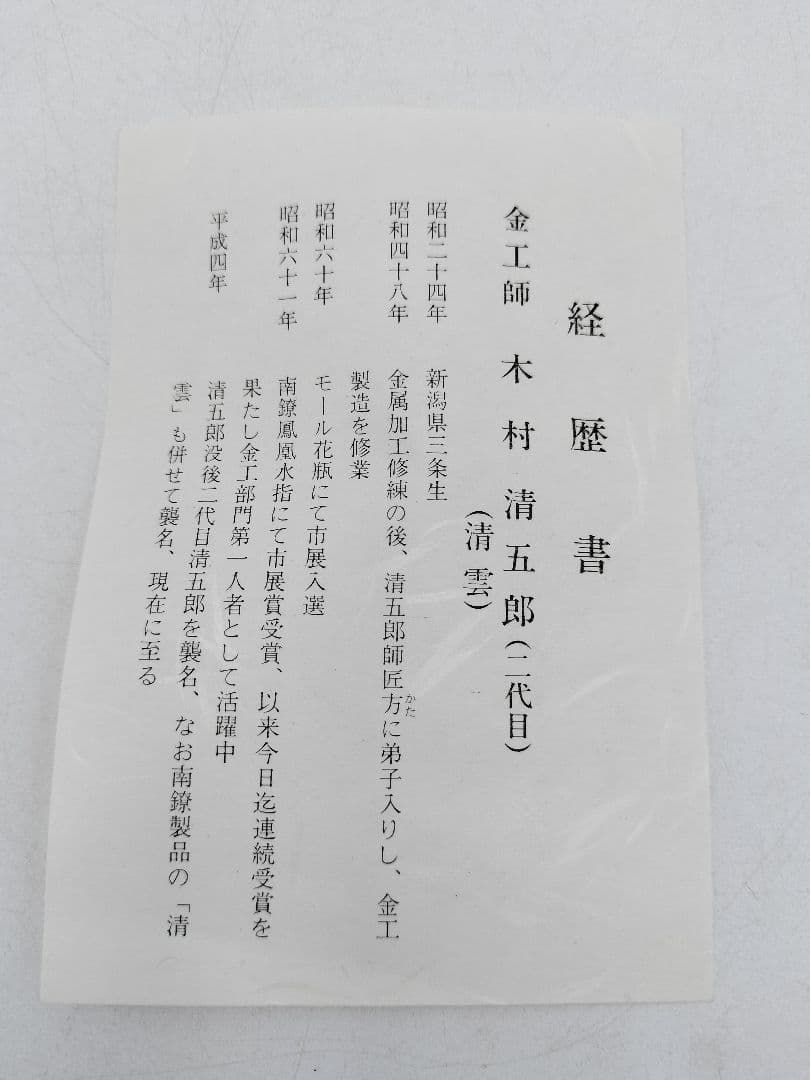 経歴書
金工師 木村清五郎（二代目）
（清雲）
昭和二十四年 新潟県三条生
昭和四十八年 金属加工修練の後、清五郎師匠方かたに弟子入りし、金工
製造を修業
昭和六十年 モール花瓶にて市展入選
昭和六十一年 南鐐鳳凰水指にて市展賞受賞、以来今日迄連続受賞を
果たし金工部門第一人者として活躍中
平成四年 清五郎没後二代目清五郎を襲名、なお南鐐製品の「清
雲」も併せて襲名、現在に至る